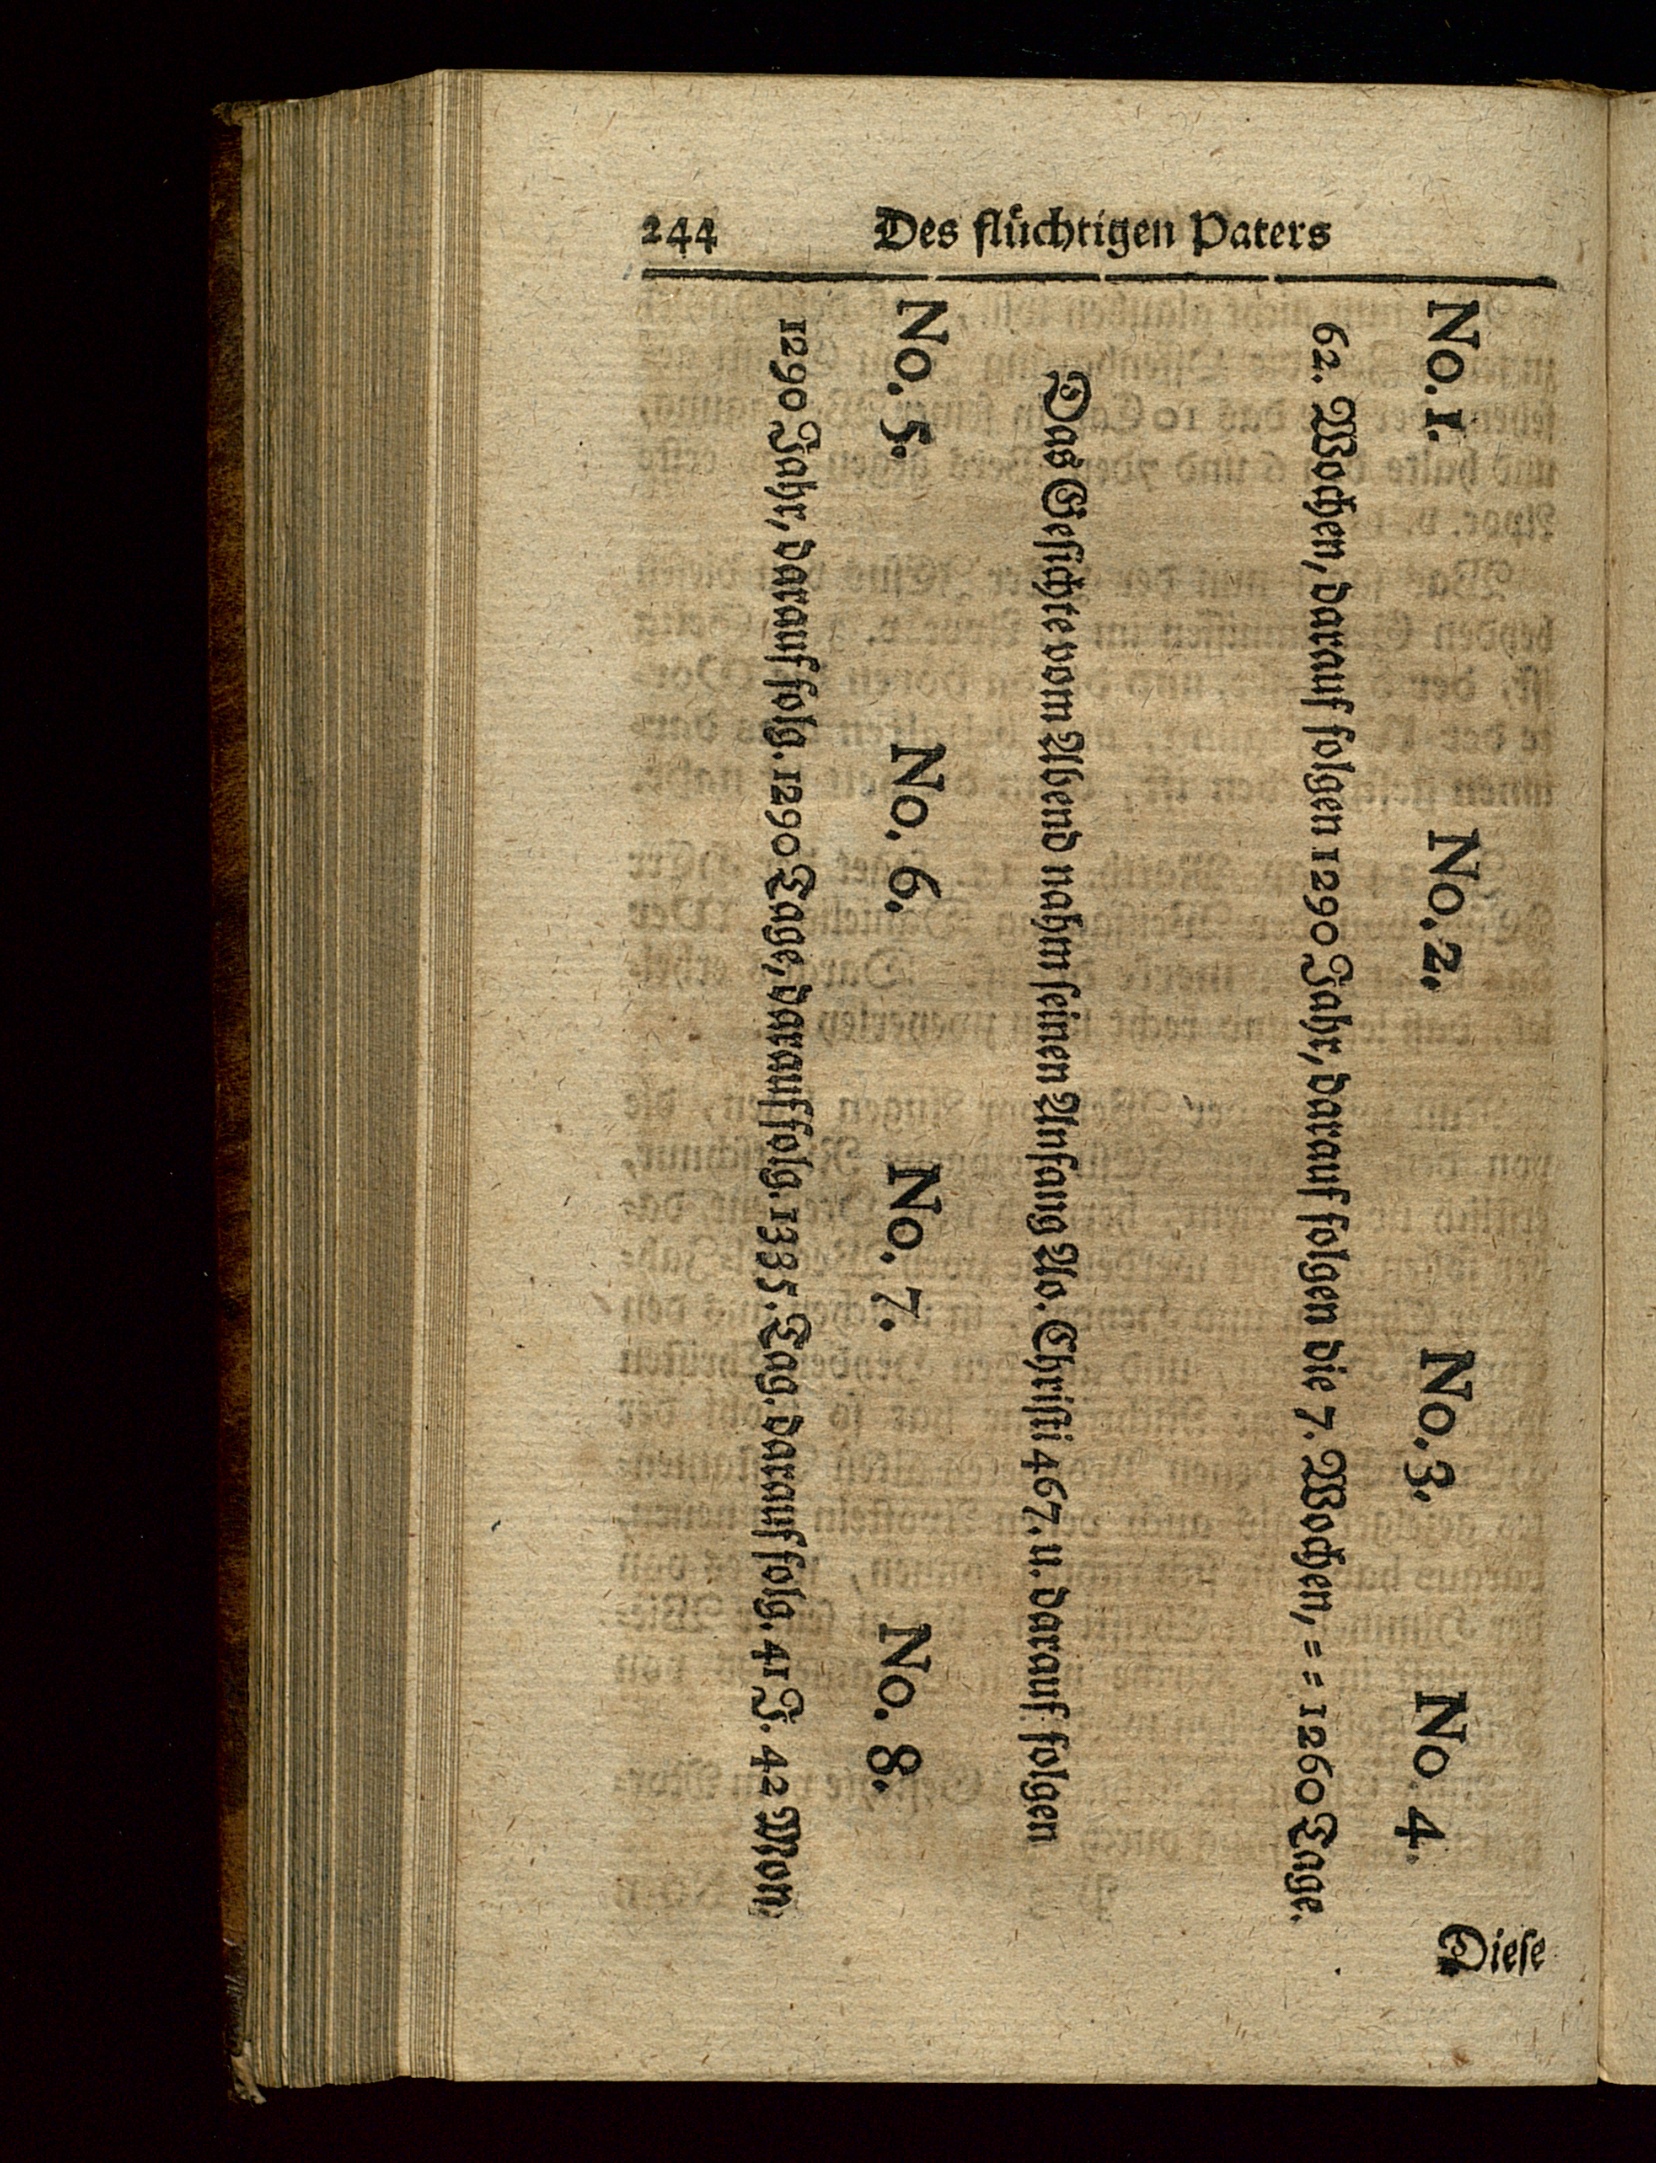 244 Des flüchtigen Paters
No. 1. No. 2. No. 3. No 4.
62. Wochen, darauf folgen 1290 Jahr, darauf folgen die 7. Wochen, = = 1260 Tage.
Das Gesichte vom Abend nahm seinen Anfang Ao. Christi 467. u. darauf folgen
No. 5. No. 6. No. 7. No. 8.
1290 Jahr, darauf folg. 1290 Tage, darauf folg. 1335. Tag. darauf folg. 41 J. 42 Mon.
Diese